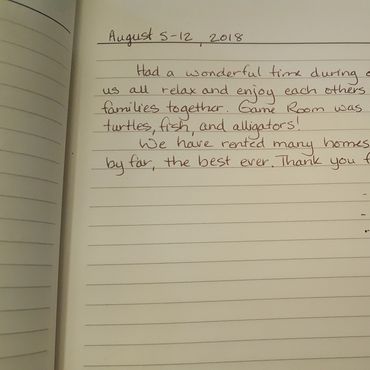 August 5-12, 2018
Had a wonderful time during
us all relax and enjoy each others
families together. Game Room was
turtles, fish, and alligators!
We have rented many homes
by far, the best ever. Thank you